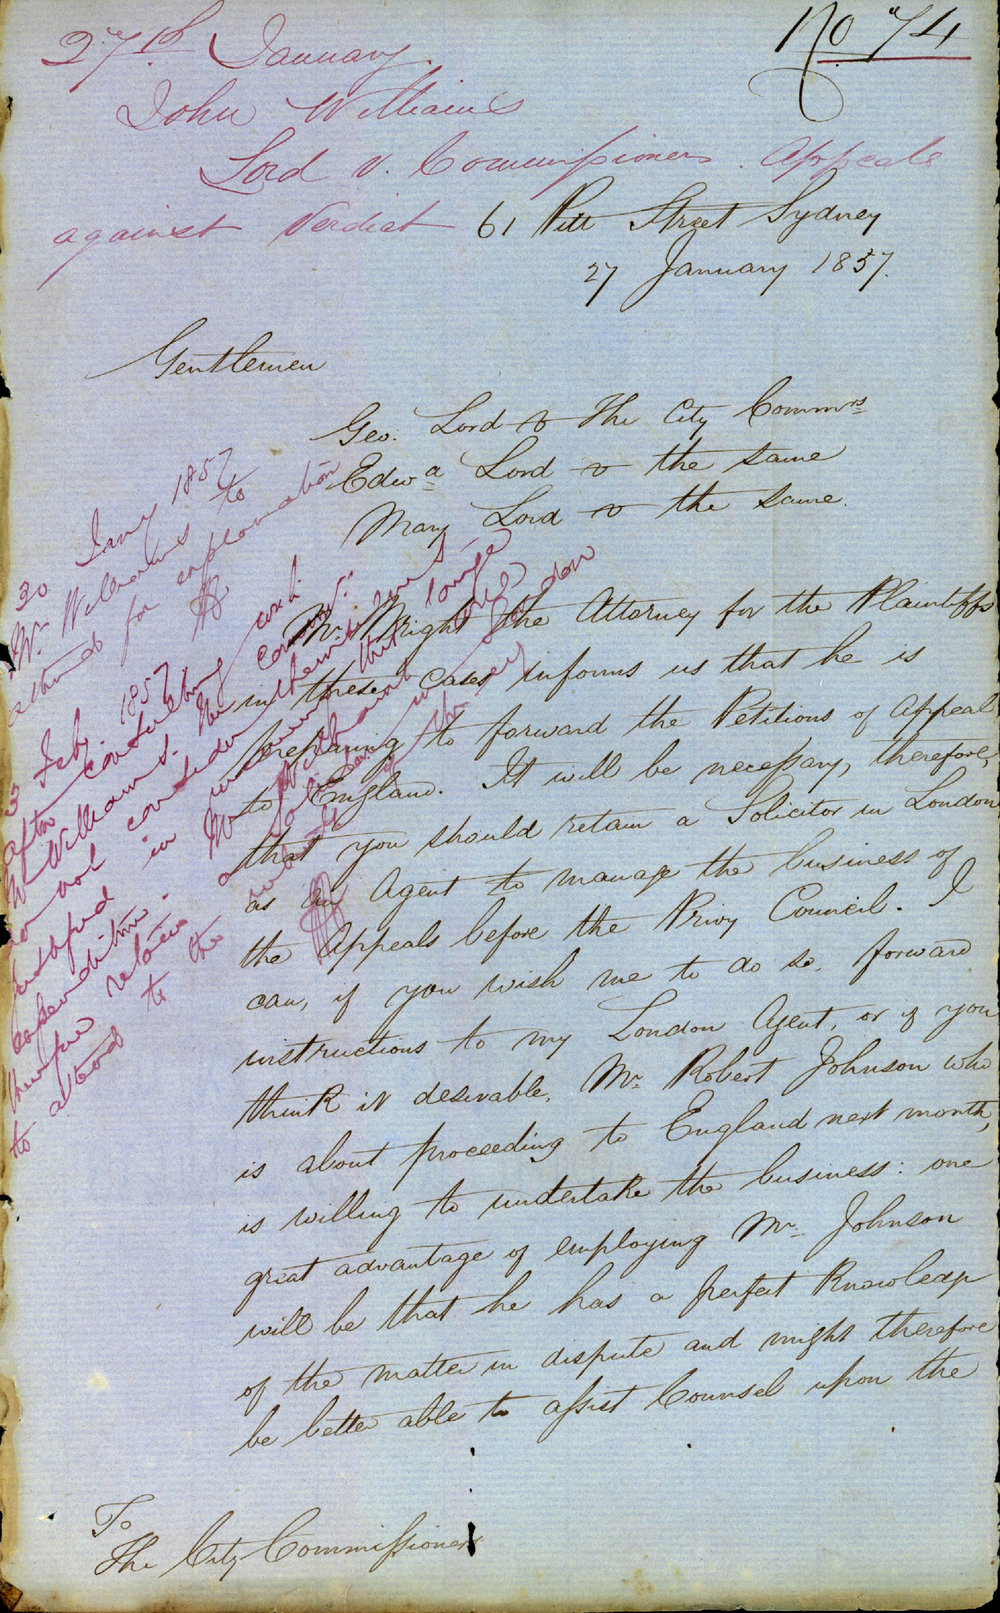 No 74
27th January
John Williams
Lord v. Commissioners. Appeals
against Verdict
61 Pitt Street Sydney
27 January 1857.
Gentlemen
Geo. Lord v The City Commrs
Edwd Lord v the same
Mary Lord v the same.
Mr. Wright the Attorney for the Plaintiffs
in these cases informs us that he is
preparing to forward the Petitions of Appeal
to England. It will be necessary, therefore,
that you should retain a Solicitor in London
as an Agent to manage the business of
the Appeals before the Privy Council. I
can, if you wish me to do so, forward
instructions to my London Agent, or if you
think it desirable, Mr. Robert Johnson who
is about proceeding to England next month,
is willing to undertake the business: one
great advantage of employing Mr. Johnson
will be that he has a perfect Knowledge
of the matter in dispute and might therefore
be better able to assist Counsel upon the
To
The City Commissioners
30 Jany 1857
Mr. Williams to
attend for explanation
3 Feby. 1857
after consulting with
Mr Williams. The
do not consider themselves
justified in incurring this large
expenditure. Mr
therefore retain a Solicitor in London
to attend to the